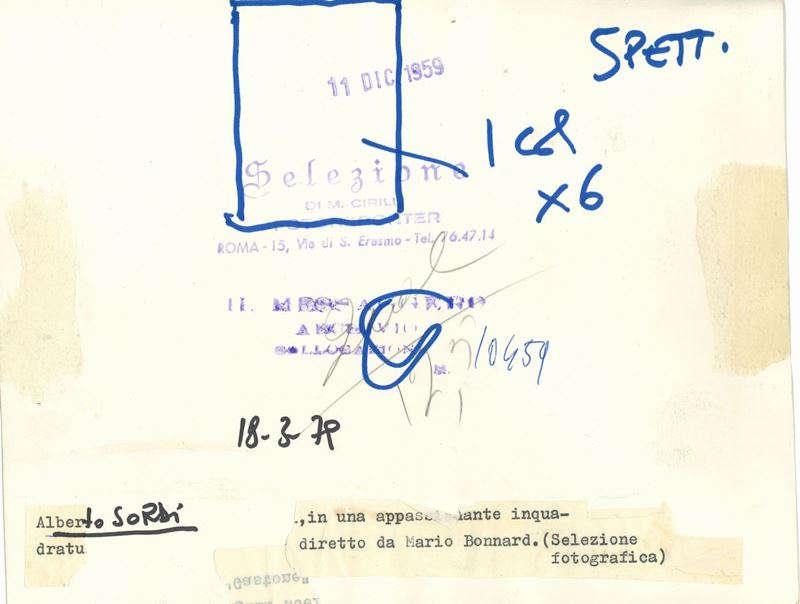 SPETT.
11 DIC 1959
1 col
x6
Selezione
DI M. CIRILL
FOTOREPORTER
ROMA - 15, Via di S. Erasmo - Tel. 76.47.14
IL MESSAGGERO
ARCHIVIO
COLLOCAZIONE
N. 10459
18-3-79
Alberto SORDI ., in una appas ante inqua-
dratu diretto da Mario Bonnard. (Selezione
fotografica)
"Gastone"